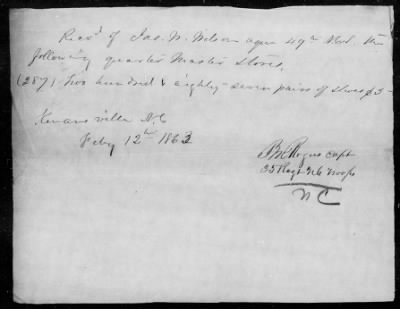 Recd of Jas. W. Wilson aqm 49th Regt. the
following quarter Master Stores.
(287) two hundred & eighty-seven pairs of shoes $3-
Kenansville N.C
Feby 12th 1863
Capt
35 Regt N.C Troops
N C